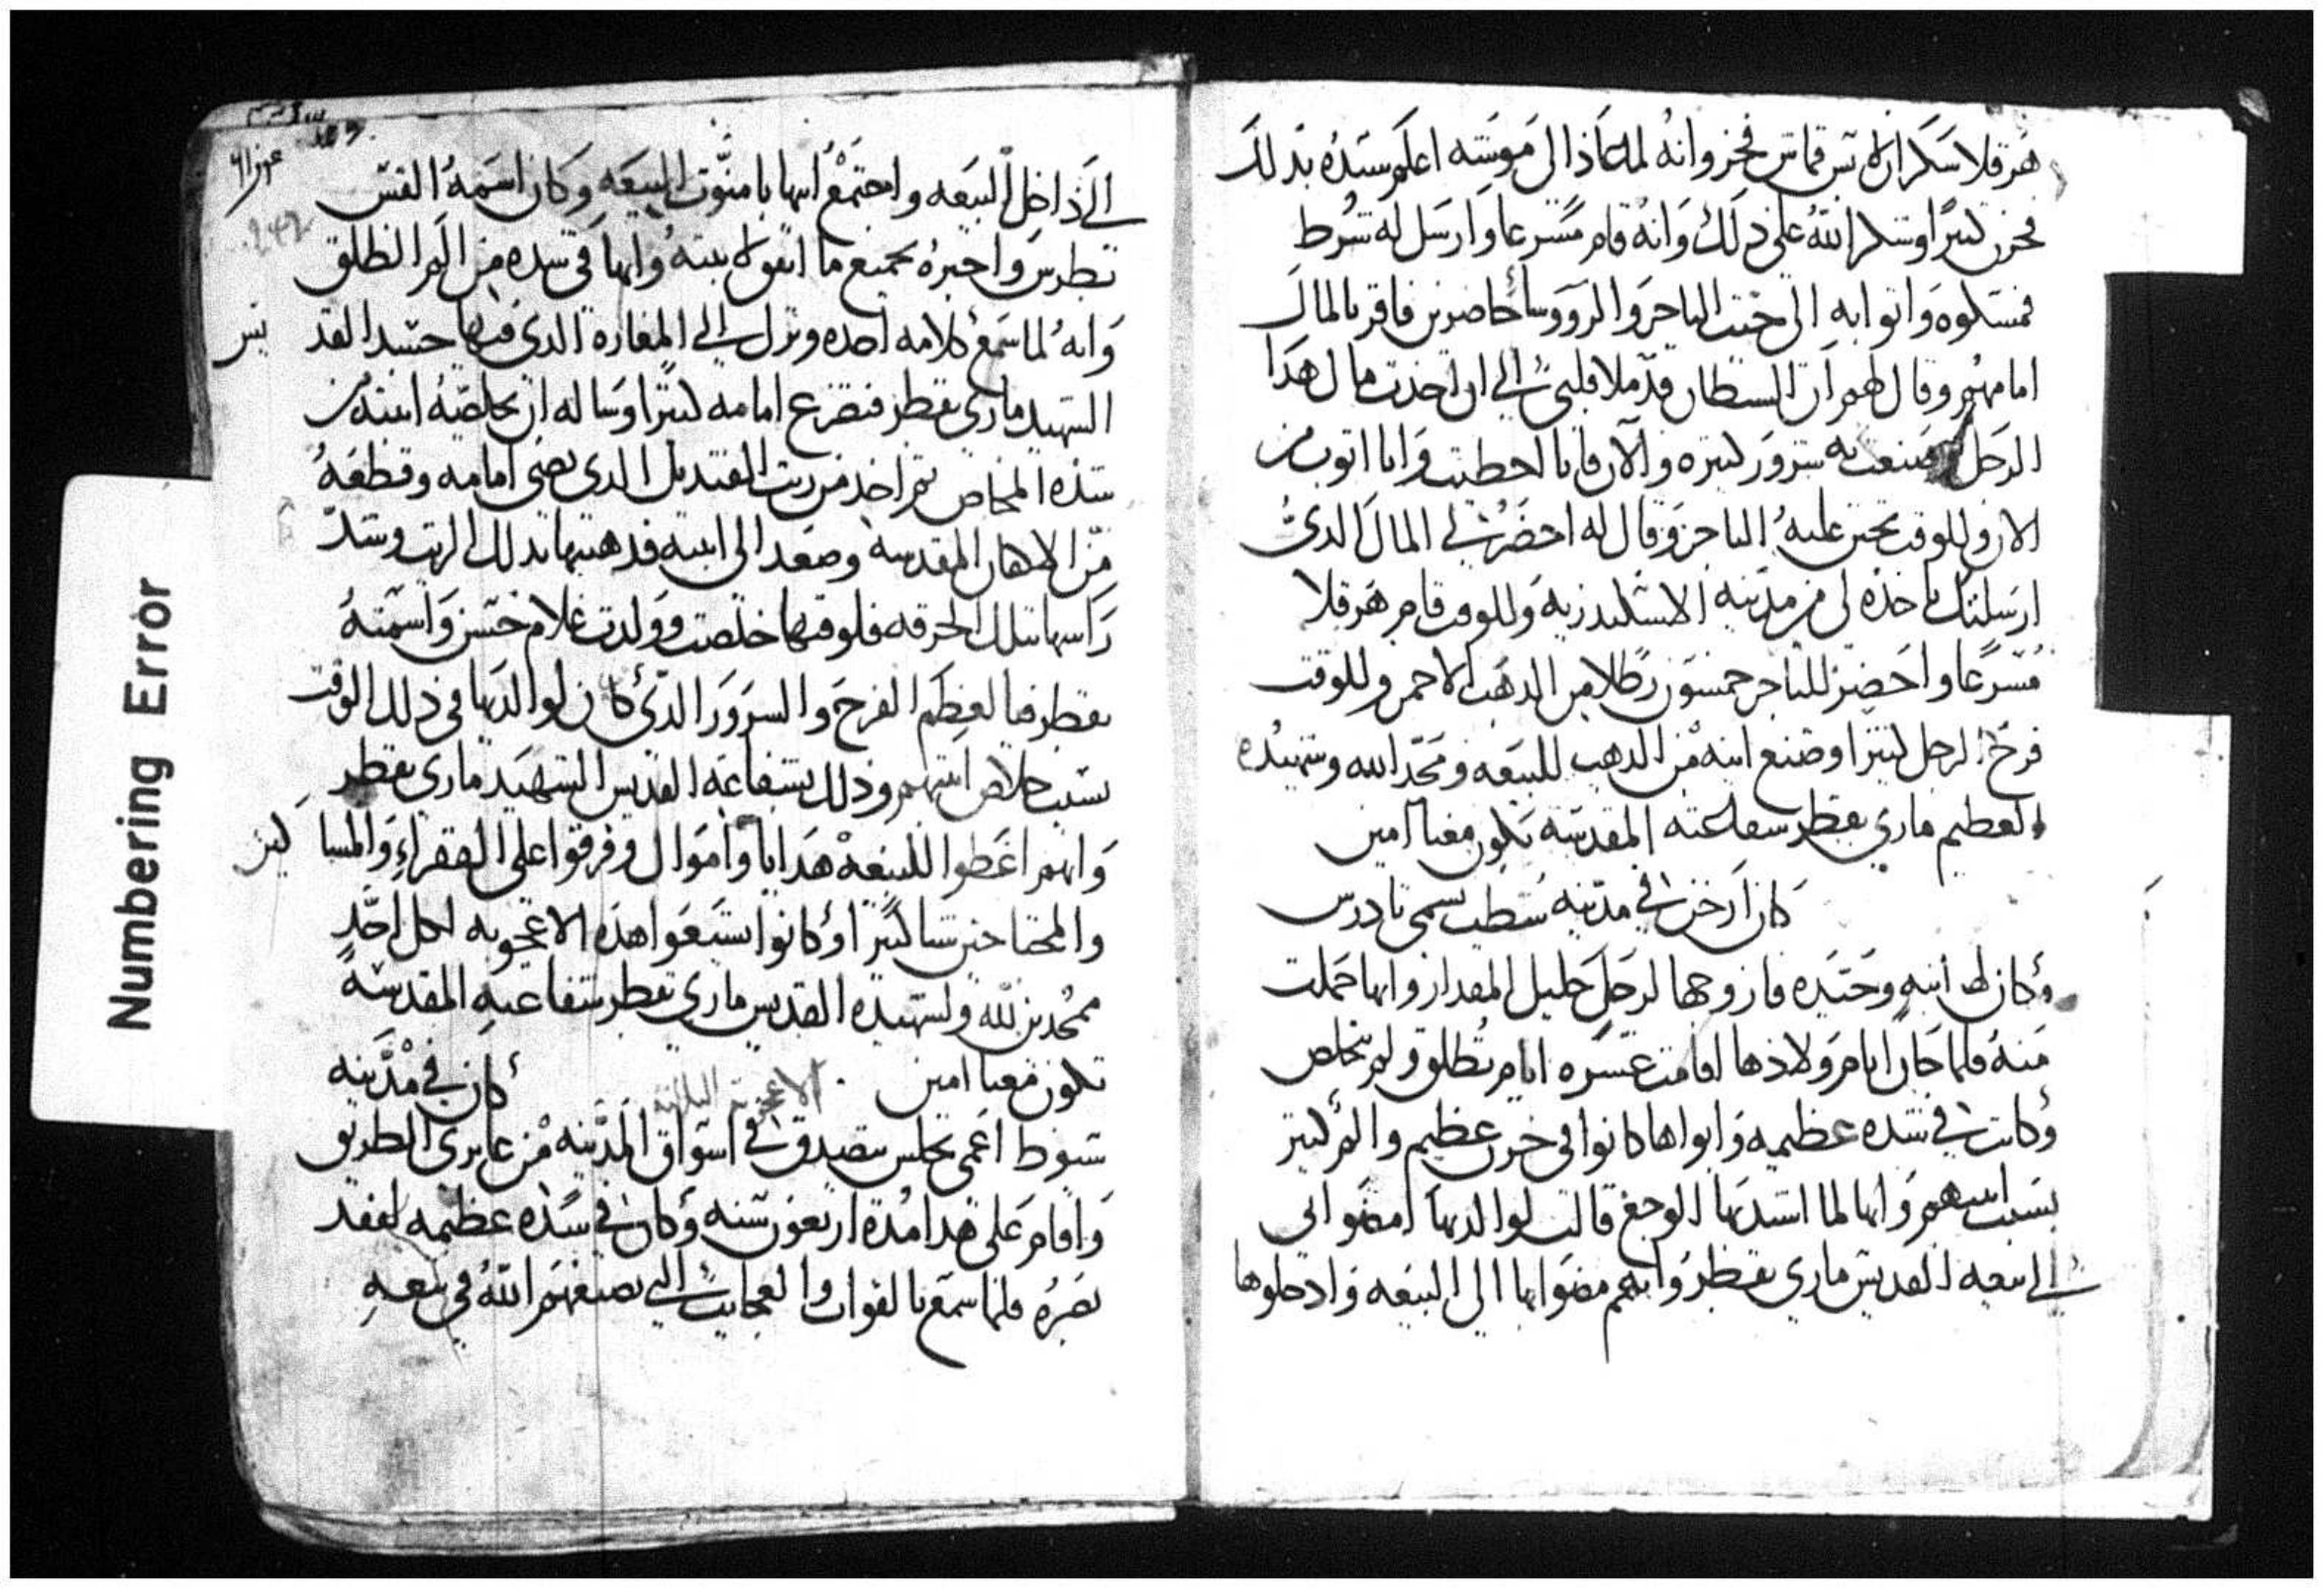 هرقلا سكران لابس قماش فخر وانه لما عاد الى موسه اعلم سيده بدلك
فحزن كتيرا وشكر الله على دلك وانه قام مسرعا وارسل له شرط
فمسكوه واتوا به الى حيت التاجر والرووسا حاضرين فاقر بالمال
امامهم وقال لهم ان الشيطان قد ملا قلبي الى ان اخدت مال هدا
الرجل وصنعت به شرور كتيره والان فانا اخطيت وانا اتوب من
الان وللوقت تحنن عليه التاجر وقال له احضر لي المال الدي
ارسلتك تاخده لي من مدينه الاسكندريه وللوقت قام هرقلا
مسرعا واحضر للتاجر خمسون رطلا من الدهب الاحمر وللوقت
فرح الرجل كتيرا وصنع انيه من الدهب للبيعه ومجد الله وشهيده
العظيم ماري بقطر شفاعته المقدسه تكون معنا امين
كان ارخن في مدينه شطب يسمى تادرس
وكان له ابنه وحيده فازوجها لرجل جليل المقدار وانها حملت
منه فلما حان ايام ولادها اقامت عشره ايام تطلق ولم تخلص
وكانت في شده عظيمه وابواها كانوا في حزن عظيم والم كتير
بسبب ابنتهم وانها لما اشتد بها الوجع قالت لوالديها امضوا بي
الى بيعه القديس ماري بقطر وانهم مضوا بها الى البيعه وادخلوها
الى داخل البيعه واجتمع ابيها بامنوت البيعه وكان اسمه القس
بطرس واخبره بجميع ما اتفق لابنته وانها في شده من الم الطلق
وانه لما سمع كلامه اخده ونزل الى المغاره الدي فيها جسد القديس
الشهيد ماري بقطر فتضرع امامه كتيرا وساله ان يخلص ابنته من
شده المخاض تم اخد من زيت القنديل الدي يضي امامه وقطعه
من الاكفان المقدسه وصعد الى ابنته فدهنها بدلك الزيت وشد
راسها بتلك الخرقه فلوقتها خلصت وولدت غلام حسن واسمته
بقطر فيا لعظم الفرح والسرور الدي كان لوالديها في ذلك الوقت
بسبب خلاص ابنتهم وذلك بشفاعه القديس الشهيد ماري بقطر
وانهم اعطوا للبيعه هدايا واموال وفرقوا على الفقراء والمساكين
والمحتاجين شيا كتيرا وكانوا يشيعوا هذه الاعجوبه لكل احد
ممجدين لله ولشهيده القديس ماري بقطر شفاعته المقدسه
تكون معنا امين . الاعجوبة الثالثة كان في مدينه
سيوط اعمى يجلس يتصدق في اسواق المدينه من عابري الطريق
واقام على هدا مده اربعون سنه وكان في شده عظيمه لفقد
بصره فلما سمع بالقوات والعجايب التي يصنعهم الله في بيعه
Numbering Error